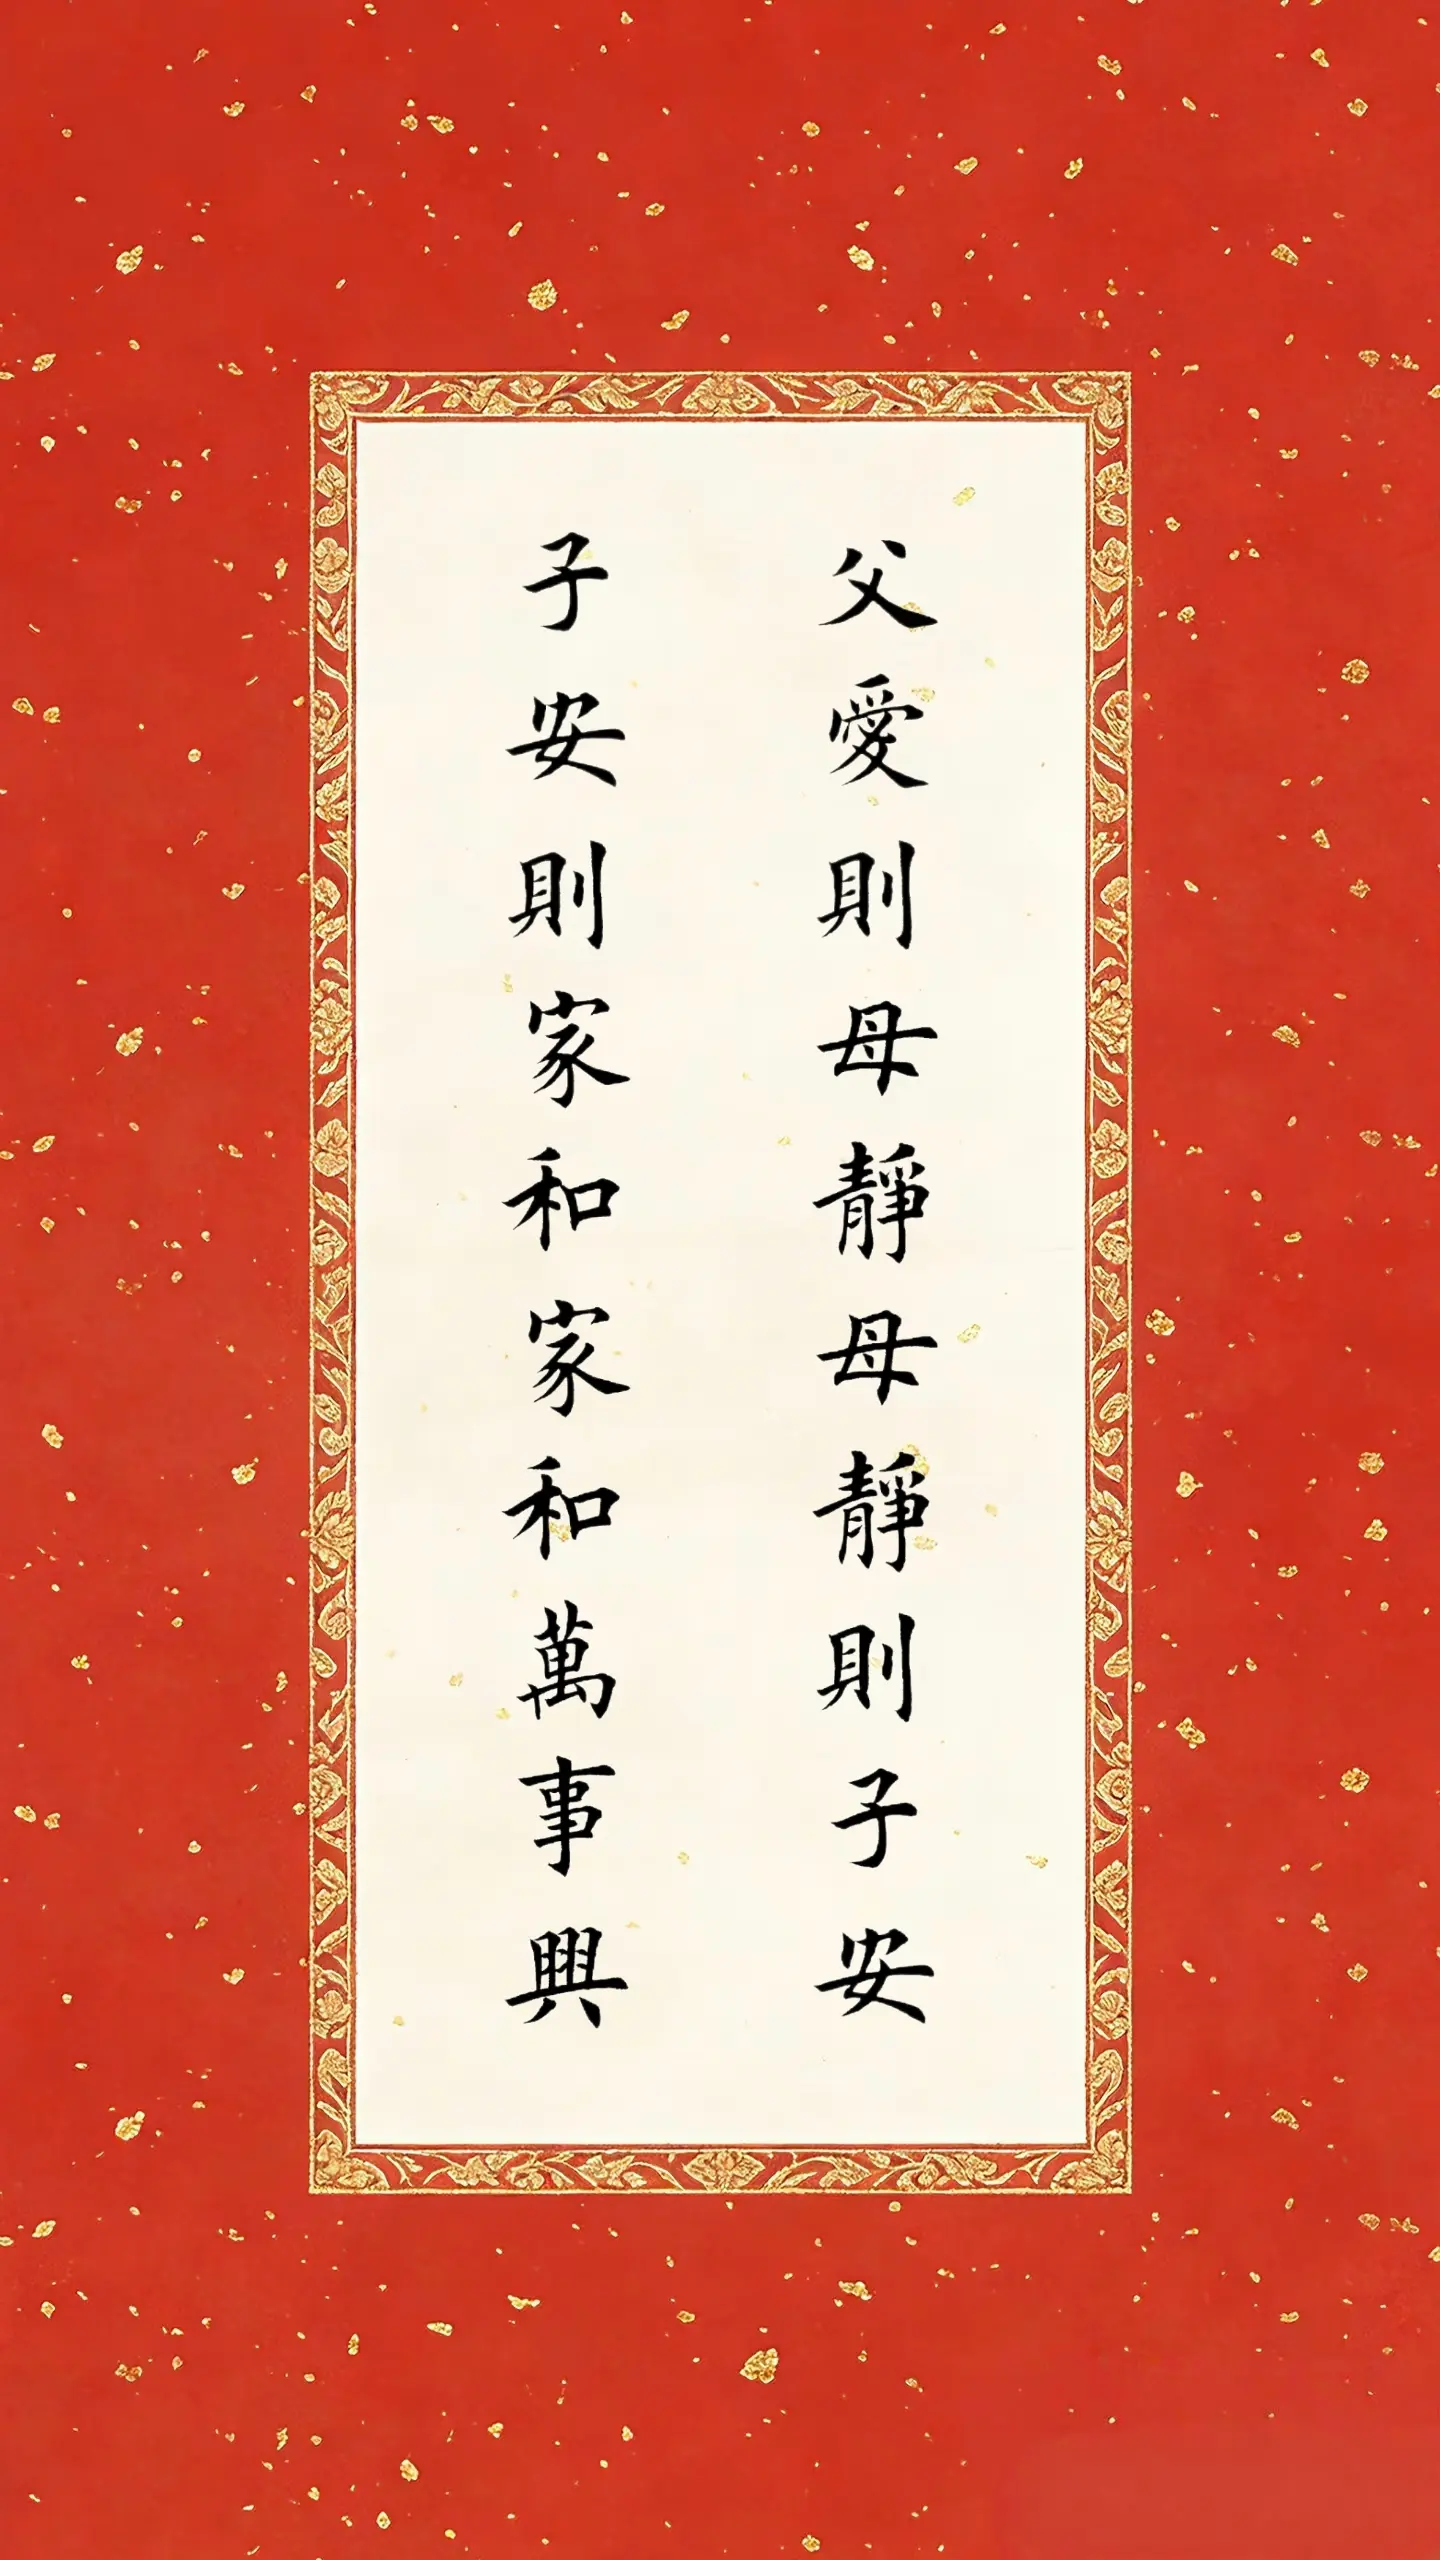 父愛則母靜母靜則子安
子安則家和家和萬事興